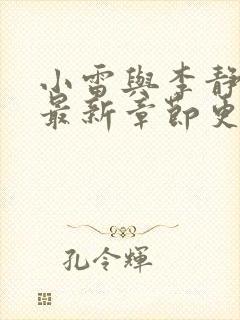 小雷與李靜
最新章節更
孔令輝